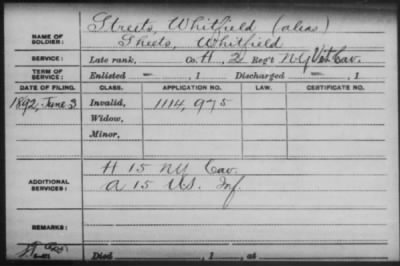 Streets, Whitfield (alias)
NAME OF SOLDIER: Sheets, Whitfield
SERVICE: Late rank, Co. H, 2 Reg't NY Vet Cav.
TERM OF SERVICE: Enlisted —, 1 Discharged —, 1
DATE OF FILING. CLASS. APPLICATION NO. LAW. CERTIFICATE NO.
1892, June 3 Invalid, 1114,975
Widow,
Minor,
ADDITIONAL SERVICES: H 15 NY Cav.
A 15 U.S. Inf.
REMARKS:
Died , 1 , at